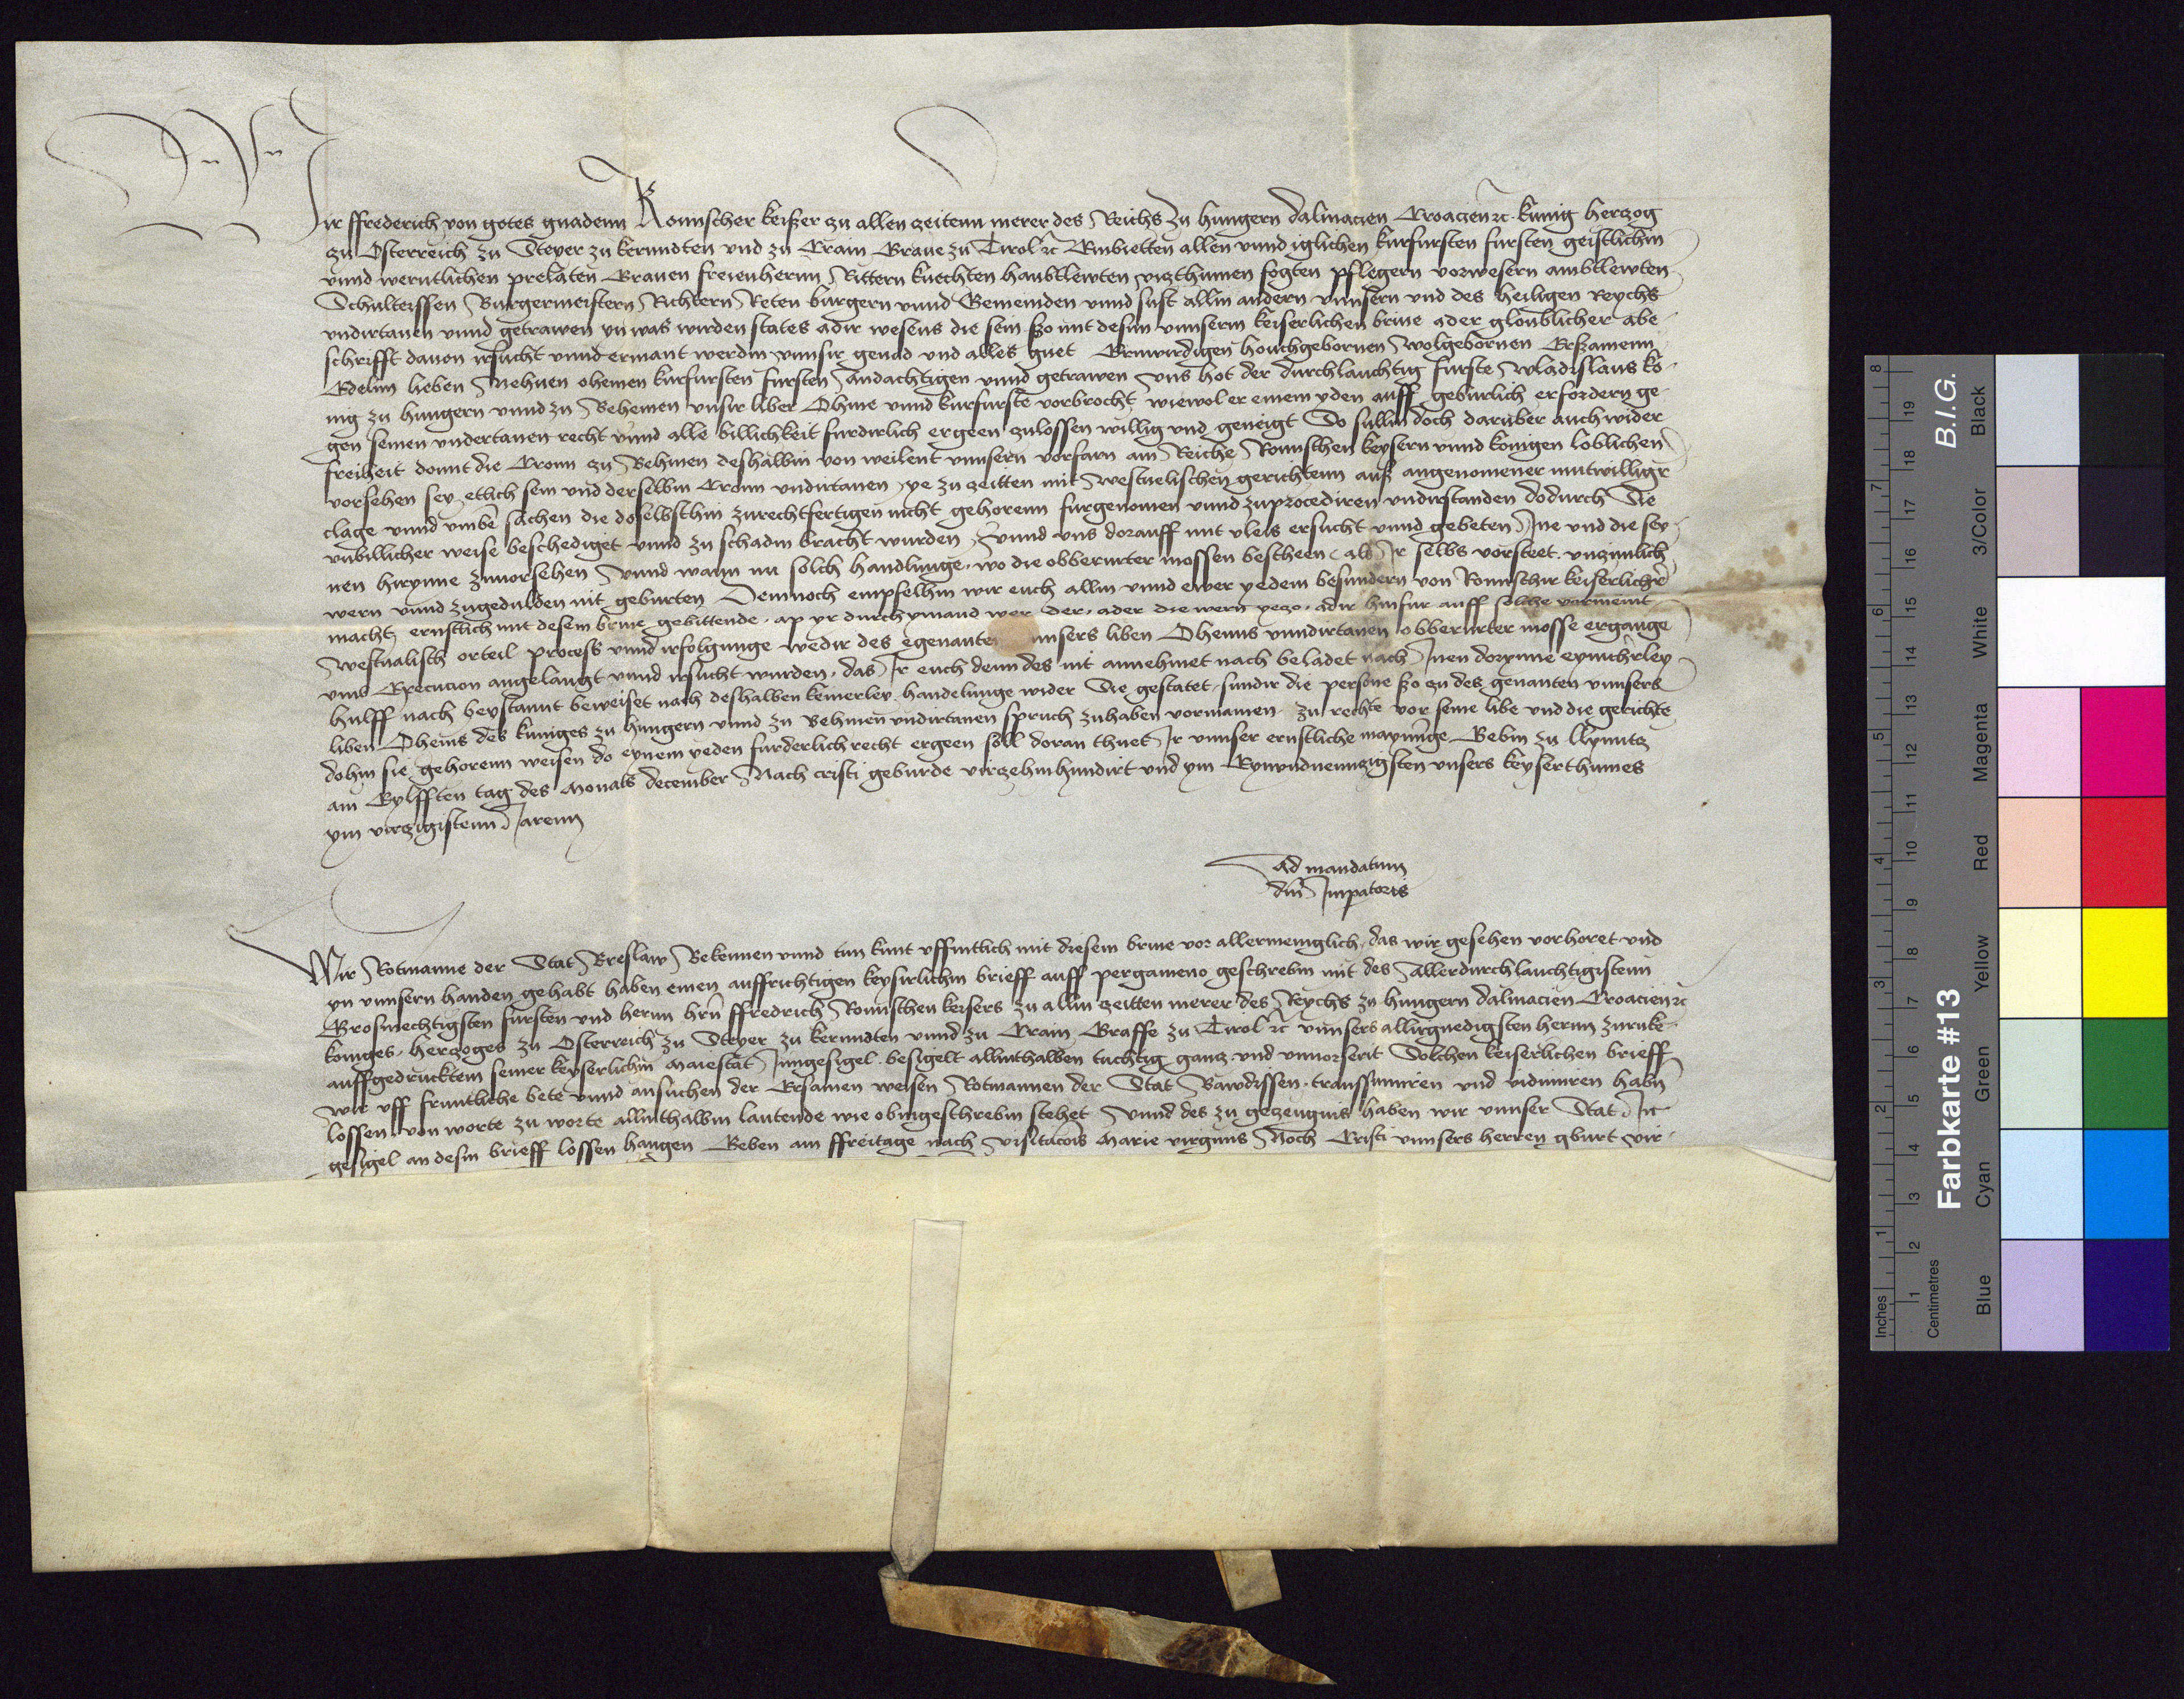 Wir ffrederich von gotes gnadenn Romischer keißer zu allen zeitenn merer des Reichs zu hungern dalmacien Croacien ꝛc. kunig herzog
zu Osterreich zu Steyer zu kerundten vnd zu Crain Graue zu Tirol ꝛc Embietten allen vnnd iglichen kurfursten fursten geistlichin
vnnd werntlichen prelaten Grauen freienhernn Rittern knechten haubtlewten vizthumen fogten pflegern vorwesern ambtlewten
Schulteissen Burgermeistern Richtern Reten burgern vnnd Gemeinden vnnd sust allin andern vnnsern vnd des heiligen Reychs
vndirtanen vnnd getrawen yn was wirden states adir wesens die sein ßo mit desim vnnserm keiserlichen briue ader gloublicher abe
schrifft dauon irsucht vnnd ermant werdin vnnsir genad vnd alles guet Erwirdigen houchgebornen Wolgebornen Erßamenn
Edelnn lieben Nehuen ohemen kurfursten fursten andachtigen vnnd getrawen vns hot der durchlauchtig furste Wladislaus ko-
nig zu hungern vnnd zu Behemen vnsir liber Ohme vnnd kurfurste vorbrocht wiewol er einem yden auff gebirlich erfordern ge
gen seinen vndertanen recht vnnd alle billichkeit furdirlich ergeen zulossen willig vnd geneigt So sullin doch daruber auch wider
freiheit domit die Cronn zu Behmen deshalbin von weilent vnnsern vorfarn am Reiche Romischen keysern vnnd konigen loblichen
vorsehen sey etlich sein vnd derselbin Cronn vndirtanen ye zu zeitten mit Westuelischen gerichtenn auß angenomener mutwilliger
clage vnnd vmbe sachen die doselbsthin zurechtfertigen nicht gehorenn furgenomen vnnd zuprocediren vndirstanden dodurch Sie
vnbillicher weise beschediget vnnd zu schadin bracht wurden vnnd vns dorauff mit vleis ersucht vnnd gebeten Ine vnd die sey
nen hirynne zuuorsehen vnnd wann nu solch handlunge wo die obberurter mossen bescheen als Ir selbs vorsteet vnzimlich
wern vnnd zugedulden nit geburten Demnoch empfelhin wir euch allin vnnd ewer yedem besundern von Romischir keiserlicher
macht ernstlich mit desem briue gebittende ap yr durch ymand wer der ader die wern yezo adir hinfur auff solche vormeint
Westualisch orteil process vnnd irfolgunge wedir des egenanten vnnsers liben Ohems vnndirtanen obberurter mosse ergange
vmb Execucion angelangt vnnd irsucht wurden das Ir euch denn des nit annehmet nach beladet nach Inen dorynne eynicherley
hulff nach beystannt beweiset nach deshalben keinerley handelunge wider Sie gestatet sundir die persone ßo zu des genanten vnnsers
liben Ohems des kuniges zu hungern vnnd zu Behmen vndirtanen spruch zuhaben vormainen zu rechte vor seine libe vnd die gerichte
dohin sie gehorenn weisen do eynem yeden furderlich recht ergeen soll doran thuet Ir vnnser ernstliche maynunge Gebin zu Lynntz
am Eylfften tag des Monats december Nach cristi geburde virzehinhundirt vnd ym Eynvndnewnzigsten vnsers keyserthumes
ym virzigistenn Jarenn
Ad mandatum
dni Impatoris
Wir Rotmanne der Stat Breslaw Bekennen vnnd tun kunt vffintlich mit diesem briue vor allermeniglich das wir gesehen vorhoret vnd
yn vnnsern handen gehabt haben einen auffrichtigen keysirlichin brieff auff pergameno geschrebin mit des Allerdurchlauchtigistenn
Grosmechtigsten fursten vnd hernn hrn ffredrich Romischen keisers zu allin zeitten merer des Reychs zu hungern dalmacien Croacien ꝛc
koniges herzoges zu Osterreich zu Steyer zu kerundten vnnd zu Crain Graffe zu Tirol ꝛc vnnsers allirgnedigsten hernn zuruke
auffgedrucktem seiner keyserlichin Maiestat Inngesigel besigelt allinthalben tuchtig ganz vnd vnuorserit Solchen keiserlichen brieff
wir vff fruntliche bete vnnd ansuchen der Ersamen weisen Rotmannen der Stat Bawdissen transsumiren vnd vidimiren habn
lossen von worte zu worte allinthalbin lautende wie obingeschrebin stehet vnnd des zu gezeugnis haben wir vnnser Stat In
gesigel an desin brieff lossen hangen Geben am ffreitage nach visitacois Marie virginis Noch Cristi vnnsers herren gburt vir
Inches
Centimetres
1 2 3 4 5 6 7 8
1 2 3 4 5 6 7 8 9 10 11 12 13 14 15 16 17 18 19
Farbkarte #13
B.I.G.
Blue Cyan Green Yellow Red Magenta White 3/Color Black